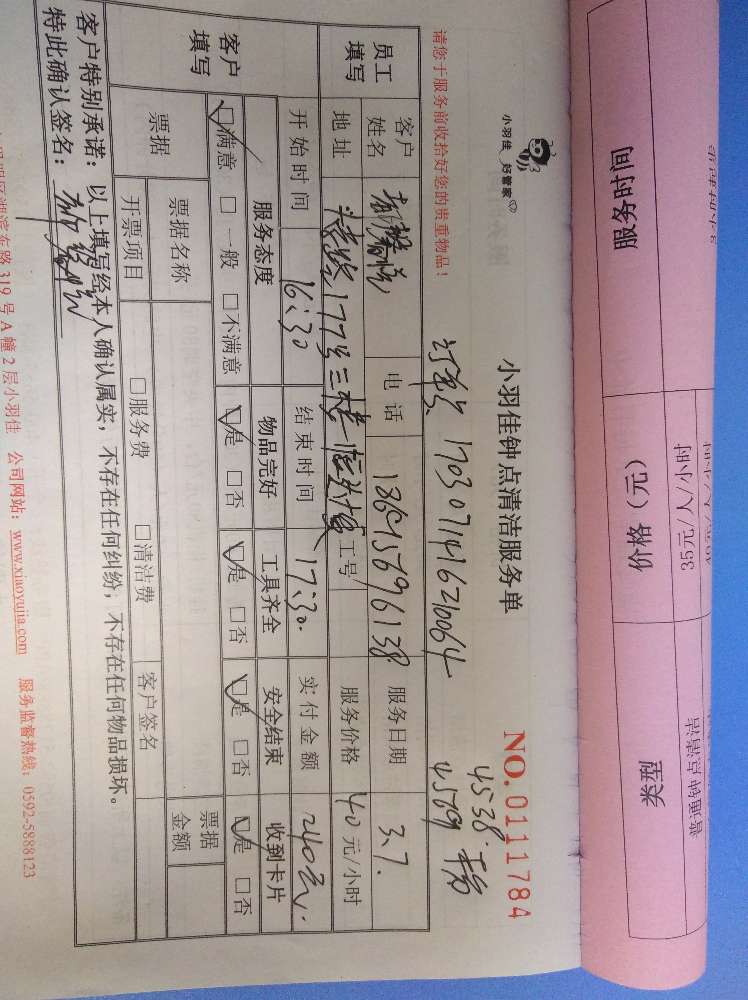 服务时间
价格（元）
类型
35元/人/小时
普通钟点清洁
小羽佳 好管家
小羽佳钟点清洁服务单
NO.0111784
请您于服务前收拾好您的贵重物品！
4538
4569
员工填写
客户姓名
电话
服务日期
3.7.
地址
177号三楼
工号
服务价格
40元/小时
开始时间
16:30
结束时间
17:30.
实付金额
240元
客户填写
服务态度
物品完好
工具齐全
安全结束
收到卡片
满意 一般 不满意
是 否
是 否
是 否
是 否
票据
票据名称
票据金额
开票项目
服务费
清洁费
客户签名
客户特别承诺：以上填写经本人确认属实，不存在任何纠纷，不存在任何物品损坏。
特此确认签名：
湖滨东路319号A幢2层小羽佳 公司网站：www.xiaoyujia.com 服务监督热线：0592-5888123